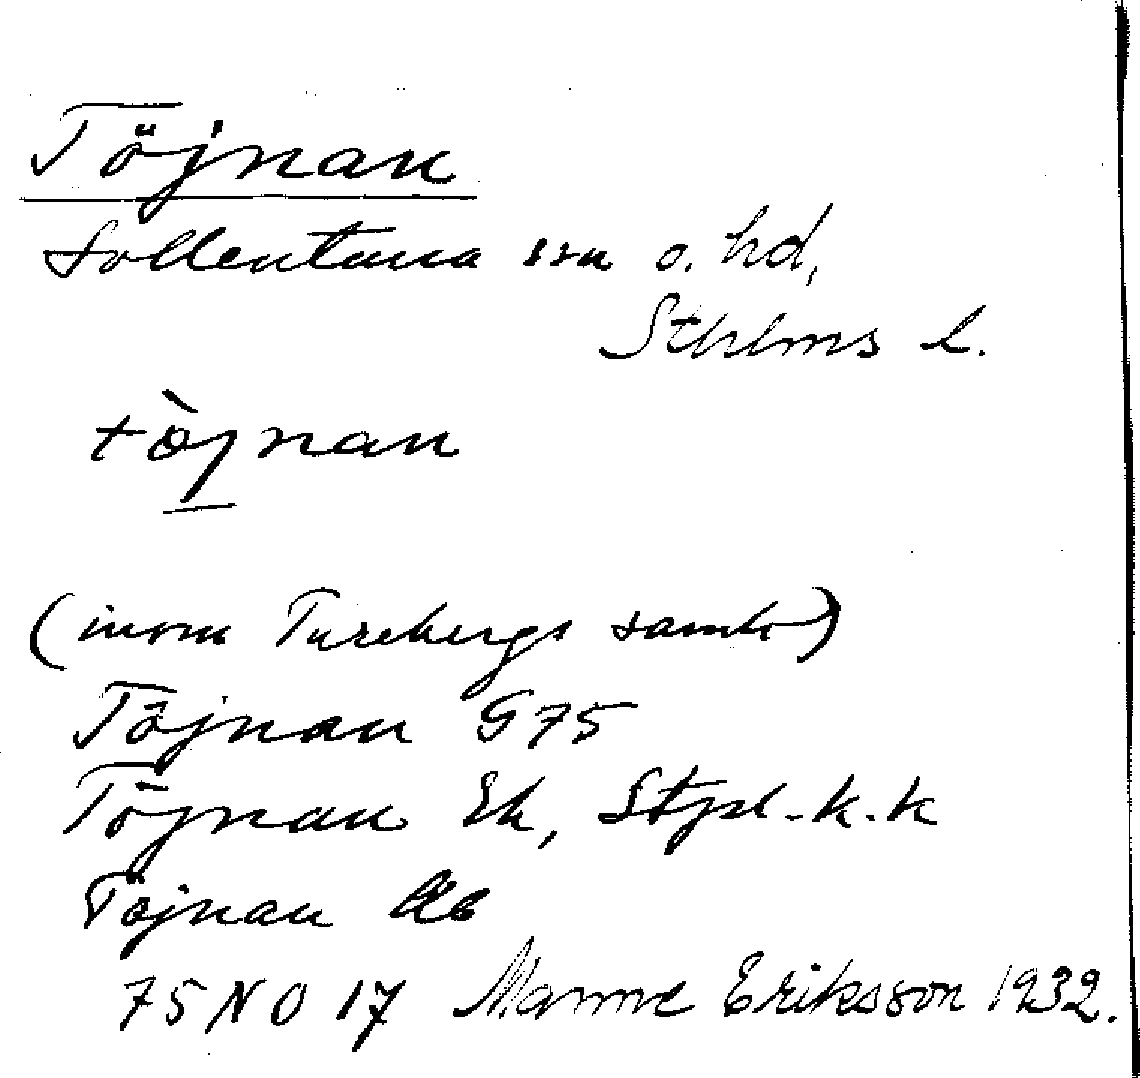 Töjnan
Sollentuna sn o. hd,
Sthlms l.
tòjnan
(inom Turebergs samh)
Töjnan G75
Töjnan Ek, Stpl-k.k
Töjnan
75 NO 17 Manne Eriksson 1932.